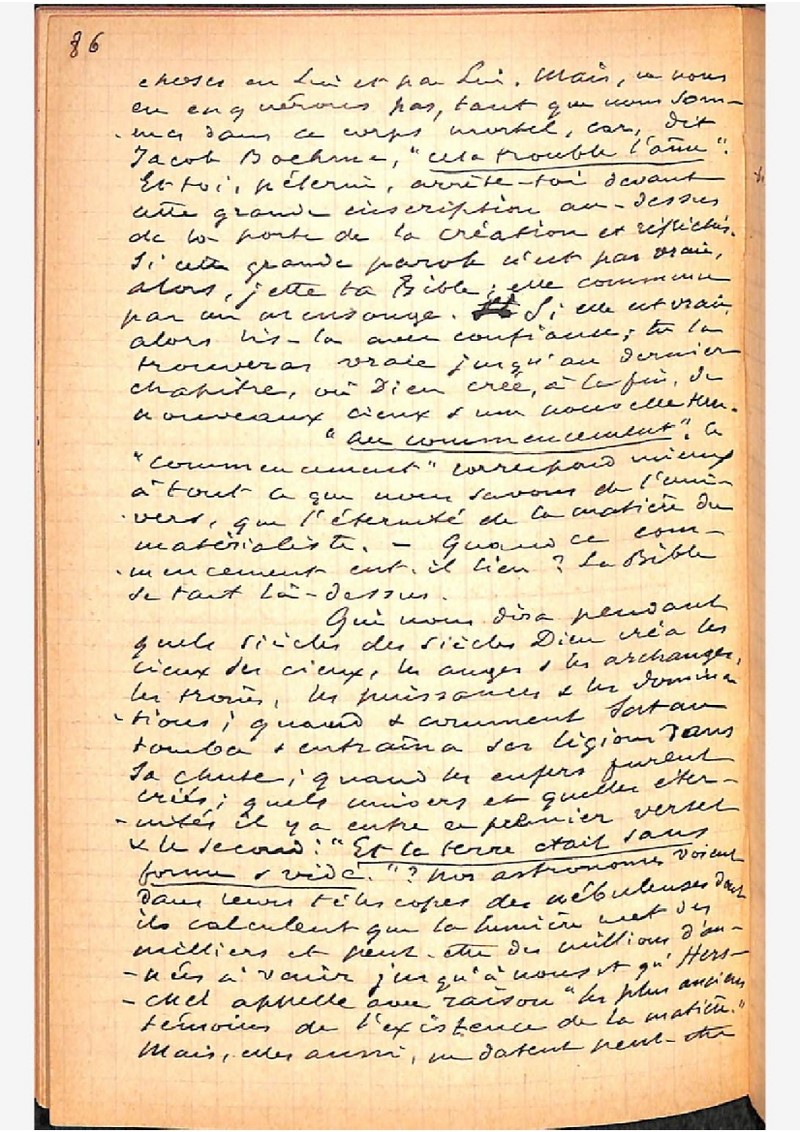 86
choses en Lui et par Lui. Mais, ne nous
en enquérons pas, tant que nous som-
-mes dans ce corps mortel, car, dit
Jacob Boehme, "cela trouble l'âme".
Et toi, pélerin, arrête-toi devant
cette grande inscription au-dessus
de la porte de la création et réfléchis.
Si cette grande parole n'est pas vraie,
alors, jette ta Bible; elle commence
par un mensonge. Si elle est vraie,
alors lis-la avec confiance; tu la
trouveras vraie jusqu'au dernier
chapitre, où Dieu crée, à la fin, de
nouveaux cieux & une nouvelle terre.
"Au commencement". Ce
"commencement" correspond mieux
à tout ce que nous savons de l'uni-
-vers, que l'éternité de la matière du
matérialiste. - Quand ce com-
-mencement eut-il lieu? La Bible
se tait là-dessus.
Qui nous dira pendant
quels siècles des siècles Dieu créa les
cieux des cieux, les anges & les archanges,
les trônes, les puissances & les domina-
-tions; quand & comment Satan
tomba & entraîna ses légions dans
sa chute; quand les enfers furent
créés; quels univers et quelles éter-
-nités il y a entre ce premier verset
& le second: "Et la terre était sans
forme & vide."? Nos astronomes voient
dans leurs télescopes des nébuleuses dont
ils calculent que la lumière met des
milliers et peut-être des millions d'an-
-nées à venir jusqu'à nous et qu'Hers-
-chel appelle avec raison "les plus anciens
témoins de l'existence de la matière."
Mais, elles aussi, ne datent peut-être